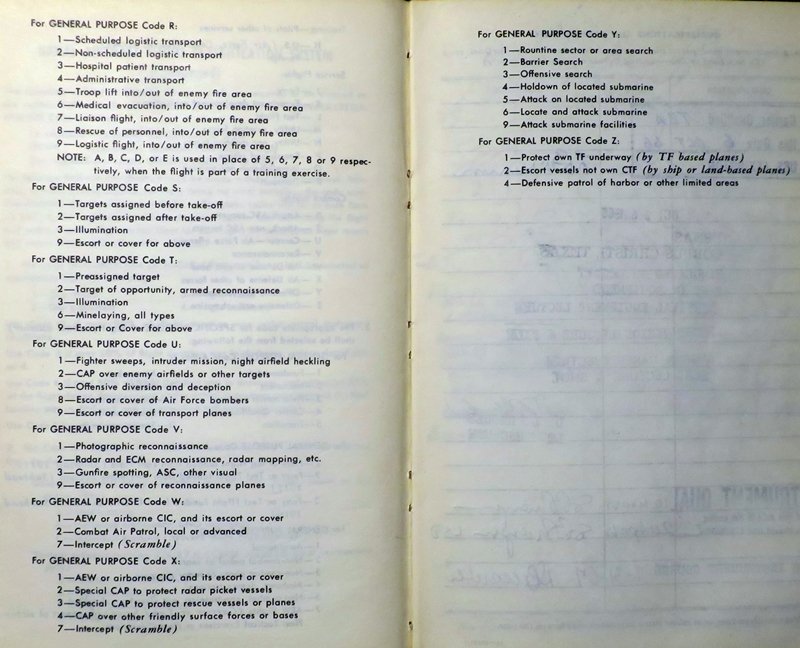 For GENERAL PURPOSE Code R:
1—Scheduled logistic transport
2—Non-scheduled logistic transport
3—Hospital patient transport
4—Administrative transport
5—Troop lift into/out of enemy fire area
6—Medical evacuation, into/out of enemy fire area
7—Liaison flight, into/out of enemy fire area
8—Rescue of personnel, into/out of enemy fire area
9—Logistic flight, into/out of enemy fire area
NOTE: A, B, C, D, or E is used in place of 5, 6, 7, 8 or 9 respec-
tively, when the flight is part of a training exercise.
For GENERAL PURPOSE Code S:
1—Targets assigned before take-off
2—Targets assigned after take-off
3—Illumination
9—Escort or cover for above
For GENERAL PURPOSE Code T:
1—Preassigned target
2—Target of opportunity, armed reconnaissance
3—Illumination
6—Minelaying, all types
9—Escort or Cover for above
For GENERAL PURPOSE Code U:
1—Fighter sweeps, intruder mission, night airfield heckling
2—CAP over enemy airfields or other targets
3—Offensive diversion and deception
8—Escort or cover of Air Force bombers
9—Escort or cover of transport planes
For GENERAL PURPOSE Code V:
1—Photographic reconnaissance
2—Radar and ECM reconnaissance, radar mapping, etc.
3—Gunfire spotting, ASC, other visual
9—Escort or cover of reconnaissance planes
For GENERAL PURPOSE Code W:
1—AEW or airborne CIC, and its escort or cover
2—Combat Air Patrol, local or advanced
7—Intercept (Scramble)
For GENERAL PURPOSE Code X:
1—AEW or airborne CIC, and its escort or cover
2—Special CAP to protect radar picket vessels
3—Special CAP to protect rescue vessels or planes
4—CAP over other friendly surface forces or bases
7—Intercept (Scramble)
For GENERAL PURPOSE Code Y:
1—Rountine sector or area search
2—Barrier Search
3—Offensive search
4—Holdown of located submarine
5—Attack on located submarine
6—Locate and attack submarine
9—Attack submarine facilities
For GENERAL PURPOSE Code Z:
1—Protect own TF underway (by TF based planes)
2—Escort vessels not own CTF (by ship or land-based planes)
4—Defensive patrol of harbor or other limited areas